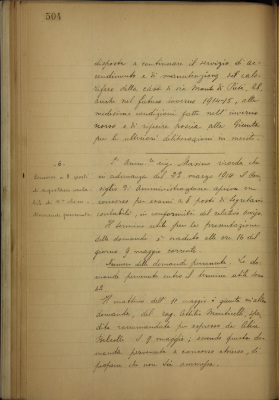 504
disposta a continuare il servizio di ac-
cendimento e di manutenzione del calo-
rifero della casa di via Monte di Pietà,
anche nel futuro inverno 1914-15, alle
medesime condizioni fatte nell'inverno
scorso e di riferire poscia alla Giunta
per le ulteriori deliberazioni in merito.
6.
Concorso a 8 posti
di segretario conta-
bile
Domande pervenute
ricorda che
in adunanza del 23 marzo 1914 il Con-
siglio di Amministrazione apriva un
concorso per esami a 8 posti di Segretari
contabili, in conformità del relativo avviso.
Il termine utile per la presentazione
delle domande è scaduto alle ore 16 del
giorno 9 maggio corrente.
domande pervenute. Le do-
mande pervenute entro il termine utile sono
62.
Il mattino dell' 11 maggio è giunta un'altra
domanda, del rag. Attilio Monticelli, spe-
dita raccomandata per espresso da
il 9 maggio; essendo questa do-
manda pervenuta a concorso chiuso, si
propone che non sia ammessa.